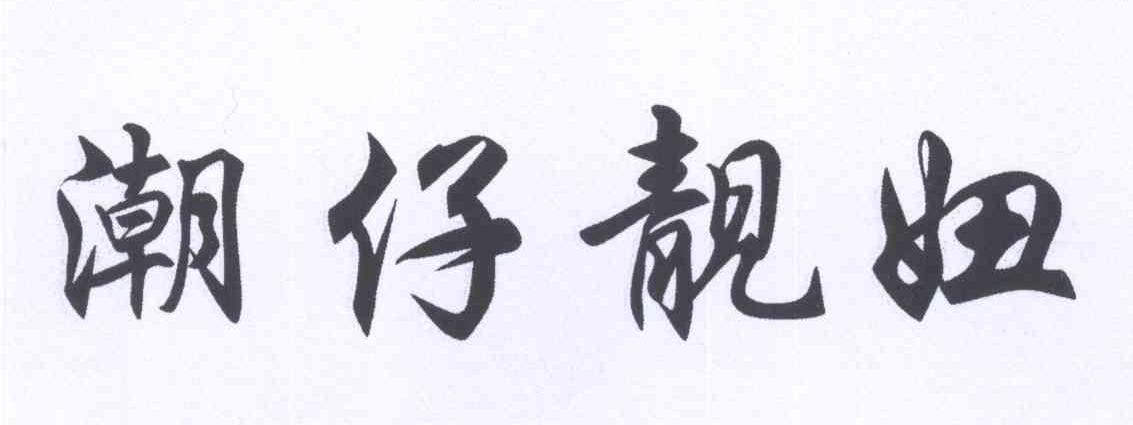 潮仔靓妞